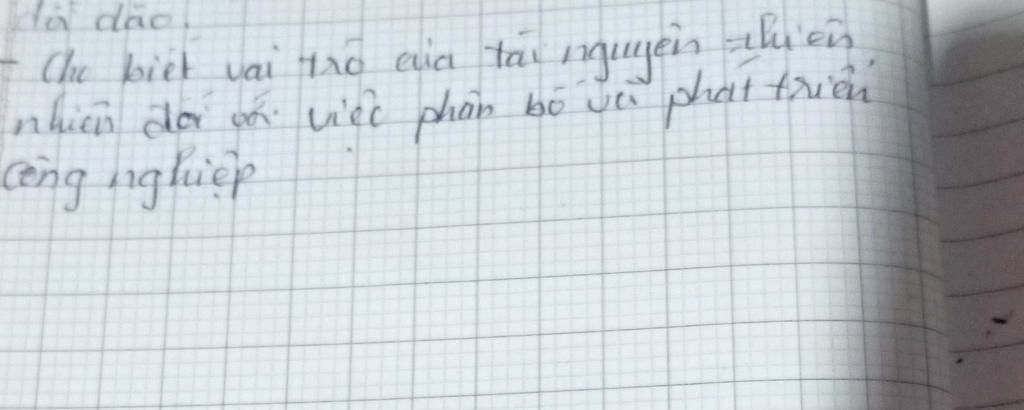 dồi dào.
- Cho biết vai trò của tài nguyên thiên
nhiên đối với việc phân bố và phát triển
công nghiệp